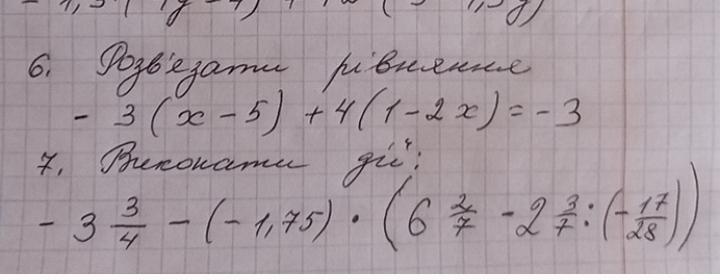 6. Розв'язати рівняння
- 3(x-5)+4(1-2x)=-3
7. Виконати дії:
-3 3/4 - (-1,75) · (6 2/7 - 2 3/7 : (-17/28))